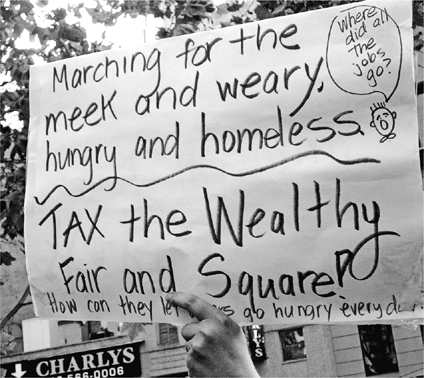 Marching for the
meek and weary,
hungry and homeless.
Where
did all
the
jobs
go?
TAX the Wealthy
Fair and Square!
How can they let go hungry every
CHARLYS
566-0006